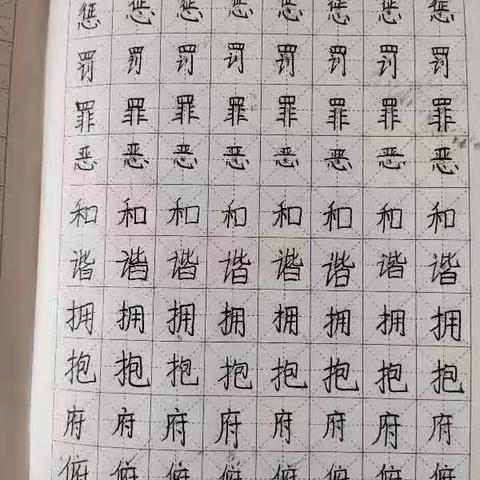 惩惩惩惩惩惩惩惩
罚罚罚罚罚罚罚罚
罪罪罪罪罪罪罪罪
恶恶恶恶恶恶恶恶
和和和和和和和和
谐谐谐谐谐谐谐谐
拥拥拥拥拥拥拥拥
抱抱抱抱抱抱抱抱
府府府府府府府府
俯俯俯俯俯俯俯俯